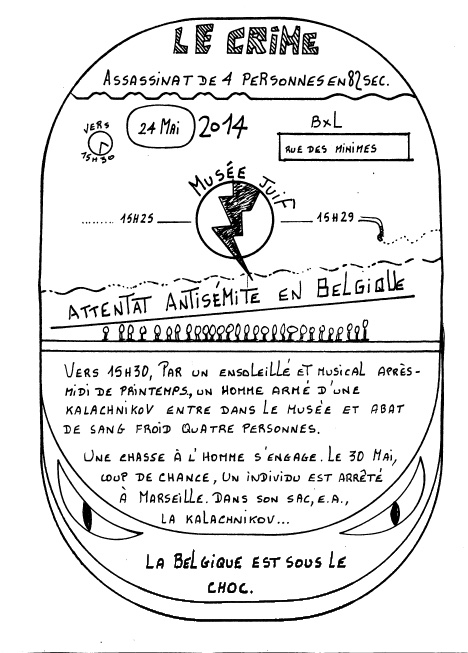 LE CRIME
ASSASSINAT DE 4 PERSONNES EN 82 SEC.
VERS
15H30
24 MAI
2014
BxL
RUE DES MINIMES
MUSÉE JUIF
15H25
15H29
ATTENTAT ANTISÉMITE EN BELGIQUE
VERS 15H30, PAR UN ENSOLEILLÉ ET MUSICAL APRÈS-
MIDI DE PRINTEMPS, UN HOMME ARMÉ D'UNE
KALACHNIKOV ENTRE DANS LE MUSÉE ET ABAT
DE SANG FROID QUATRE PERSONNES.
UNE CHASSE À L'HOMME S'ENGAGE. LE 30 MAI,
COUP DE CHANCE, UN INDIVIDU EST ARRÊTÉ
À MARSEILLE. DANS SON SAC, E.A.,
LA KALACHNIKOV...
LA BELGIQUE EST SOUS LE
CHOC.